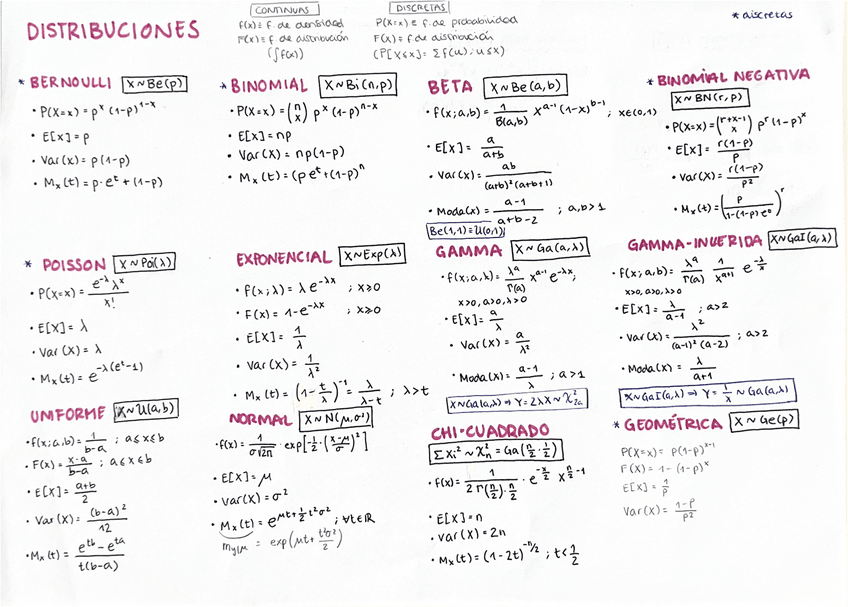 DISTRIBUCIONES
CONTINUAS
f(x) ≡ f. de densidad
F(x) ≡ f. de distribución
(∫f(x))
DISCRETAS
P(X=x) ≡ f. de probabilidad
F(x) ≡ f. de distribución
(P[X≤x] = Σ f(u); u≤x)
* discretas
* BERNOULLI X~Be(p)
• P(X=x) = p^x (1-p)^{1-x}
• E[X] = p
• Var(X) = p(1-p)
• M_x(t) = p·e^t + (1-p)
* BINOMIAL X~Bi(n,p)
• P(X=x) = (n x) p^x (1-p)^{n-x}
• E[X] = np
• Var(X) = np(1-p)
• M_x(t) = (pe^t + (1-p)^n
BETA X~Be(a,b)
• f(x;a,b) = 1/B(a,b) x^{a-1} (1-x)^{b-1} ; x∈(0,1)
• E[X] = a/(a+b)
• Var(X) = ab/((a+b)^2 (a+b+1))
• Moda(x) = (a-1)/(a+b-2) ; a,b>1
Be(1,1) = U(0,1)
* BINOMIAL NEGATIVA
X~BN(r,p)
• P(X=x) = (r+x-1 x) p^r (1-p)^x
• E[X] = r(1-p)/p
• Var(X) = r(1-p)/p^2
• M_x(t) = (p/(1-(1-p)e^t))^r
* POISSON X~Poi(λ)
• P(X=x) = e^{-λ} λ^x / x!
• E[X] = λ
• Var(X) = λ
• M_x(t) = e^{-λ(e^t-1)}
EXPONENCIAL X~Exp(λ)
• f(x;λ) = λe^{-λx} ; x≥0
• F(x) = 1-e^{-λx} ; x≥0
• E[X] = 1/λ
• Var(X) = 1/λ^2
• M_x(t) = (1-t/λ)^{-1} = λ/(λ-t) ; λ>t
GAMMA X~Ga(a,λ)
• f(x;a,λ) = λ^a/Γ(a) x^{a-1} e^{-λx};
x>0, a>0, λ>0
• E[X] = a/λ
• Var(X) = a/λ^2
• Moda(x) = (a-1)/λ ; a>1
X~Ga(a,λ) ⇒ Y=2λX~χ^2_{2a}
GAMMA-INVERTIDA X~GaI(a,λ)
• f(x;a,b) = λ^a/Γ(a) 1/x^{a+1} e^{-λ/x}
x>0, a>0, λ>0
• E[X] = λ/(a-1) ; a>2
• Var(t) = λ^2/((a-1)^2 (a-2)) ; a>2
• Moda(x) = λ/(a+1)
X~GaI(a,λ) ⇒ Y=1/X ~Ga(a,λ)
UNIFORME X~U(a,b)
• f(x;a,b) = 1/(b-a) ; a≤x≤b
• F(x) = (x-a)/(b-a) ; a≤x≤b
• E[X] = (a+b)/2
• Var(X) = (b-a)^2/12
• M_x(t) = (e^{tb}-e^{ta})/(t(b-a))
NORMAL X~N(μ,σ^2)
• f(x) = 1/(σ√2π) · exp[-1/2·((x-μ)/σ)^2]
• E[X] = μ
• Var(X) = σ^2
• M_x(t) = e^{μt+1/2 t^2σ^2} ; ∀t∈ℝ
= exp(μt + t^2σ^2/2)
CHI-CUADRADO
ΣX_i^2 ~ χ^2_n = Ga(n/2, 1/2)
• f(x) = 1/(2Γ(n/2)·n/2) · e^{-x/2} x^{n/2-1}
• E[X] = n
• Var(X) = 2n
• M_x(t) = (1-2t)^{-n/2} ; t<1/2
* GEOMÉTRICA X~Ge(p)
P(X=x) = p(1-p)^{x-1}
F(X) = 1-(1-p)^x
E[X] = 1/p
Var(X) = (1-p)/p^2